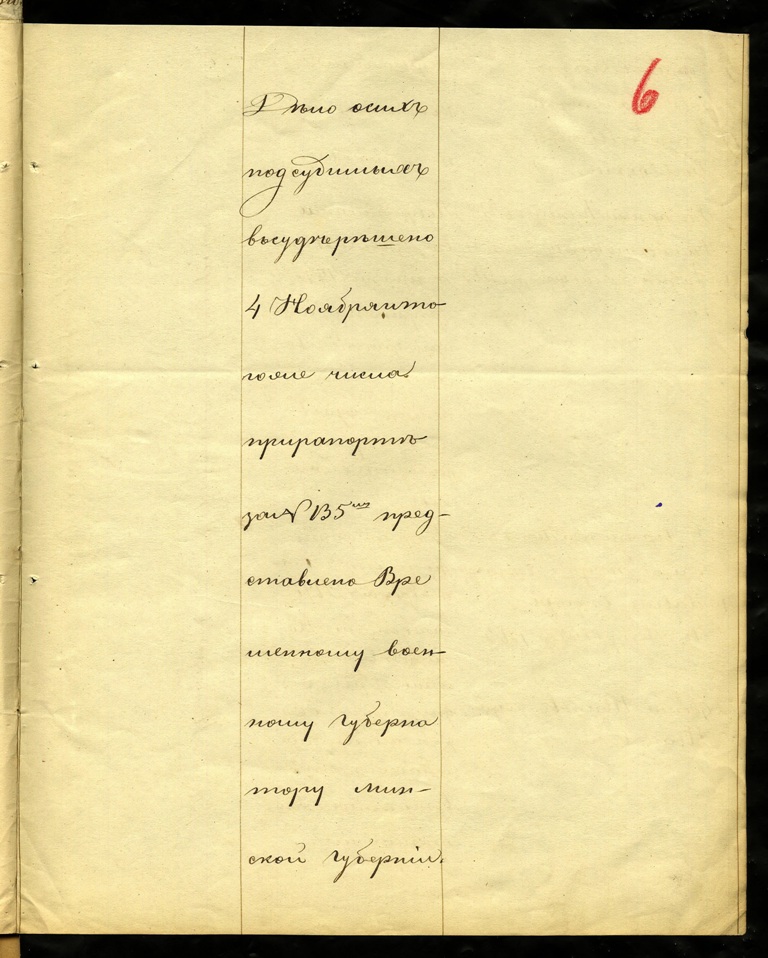 6
Дѣло осихъ
подсудимыхъ
въсудѣ рѣшено
4 Ноября ито
гоже числа
прирапортѣ
за№ 135ᵐᵘ пред-
ставлено Вре
менному воен-
ному Губерна
тору мин-
ской Губерніи.